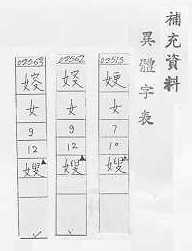 補充資料
異體字表
02515
㛐
女
7
10
嫂
女
9
12
嫂
02563
女
9
12
嫂